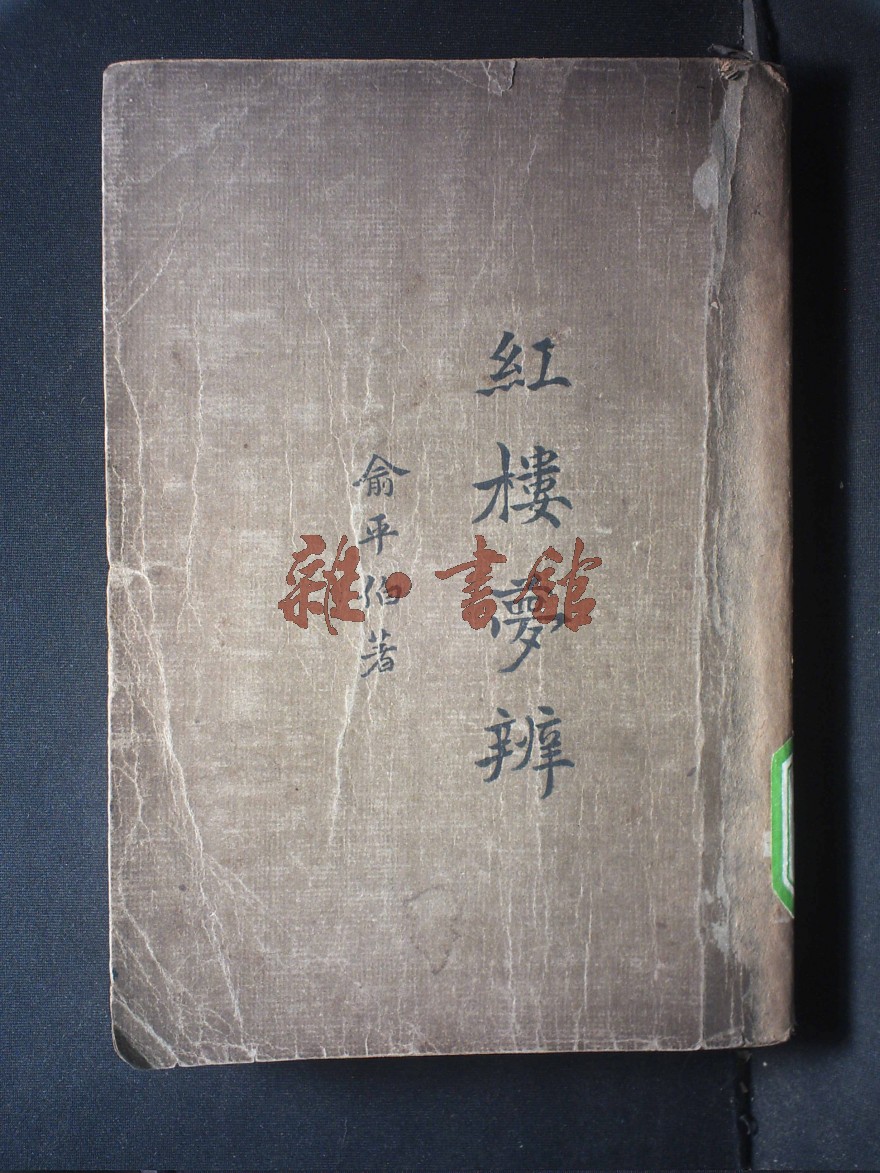 紅樓夢辨
俞平伯著
雜·書館